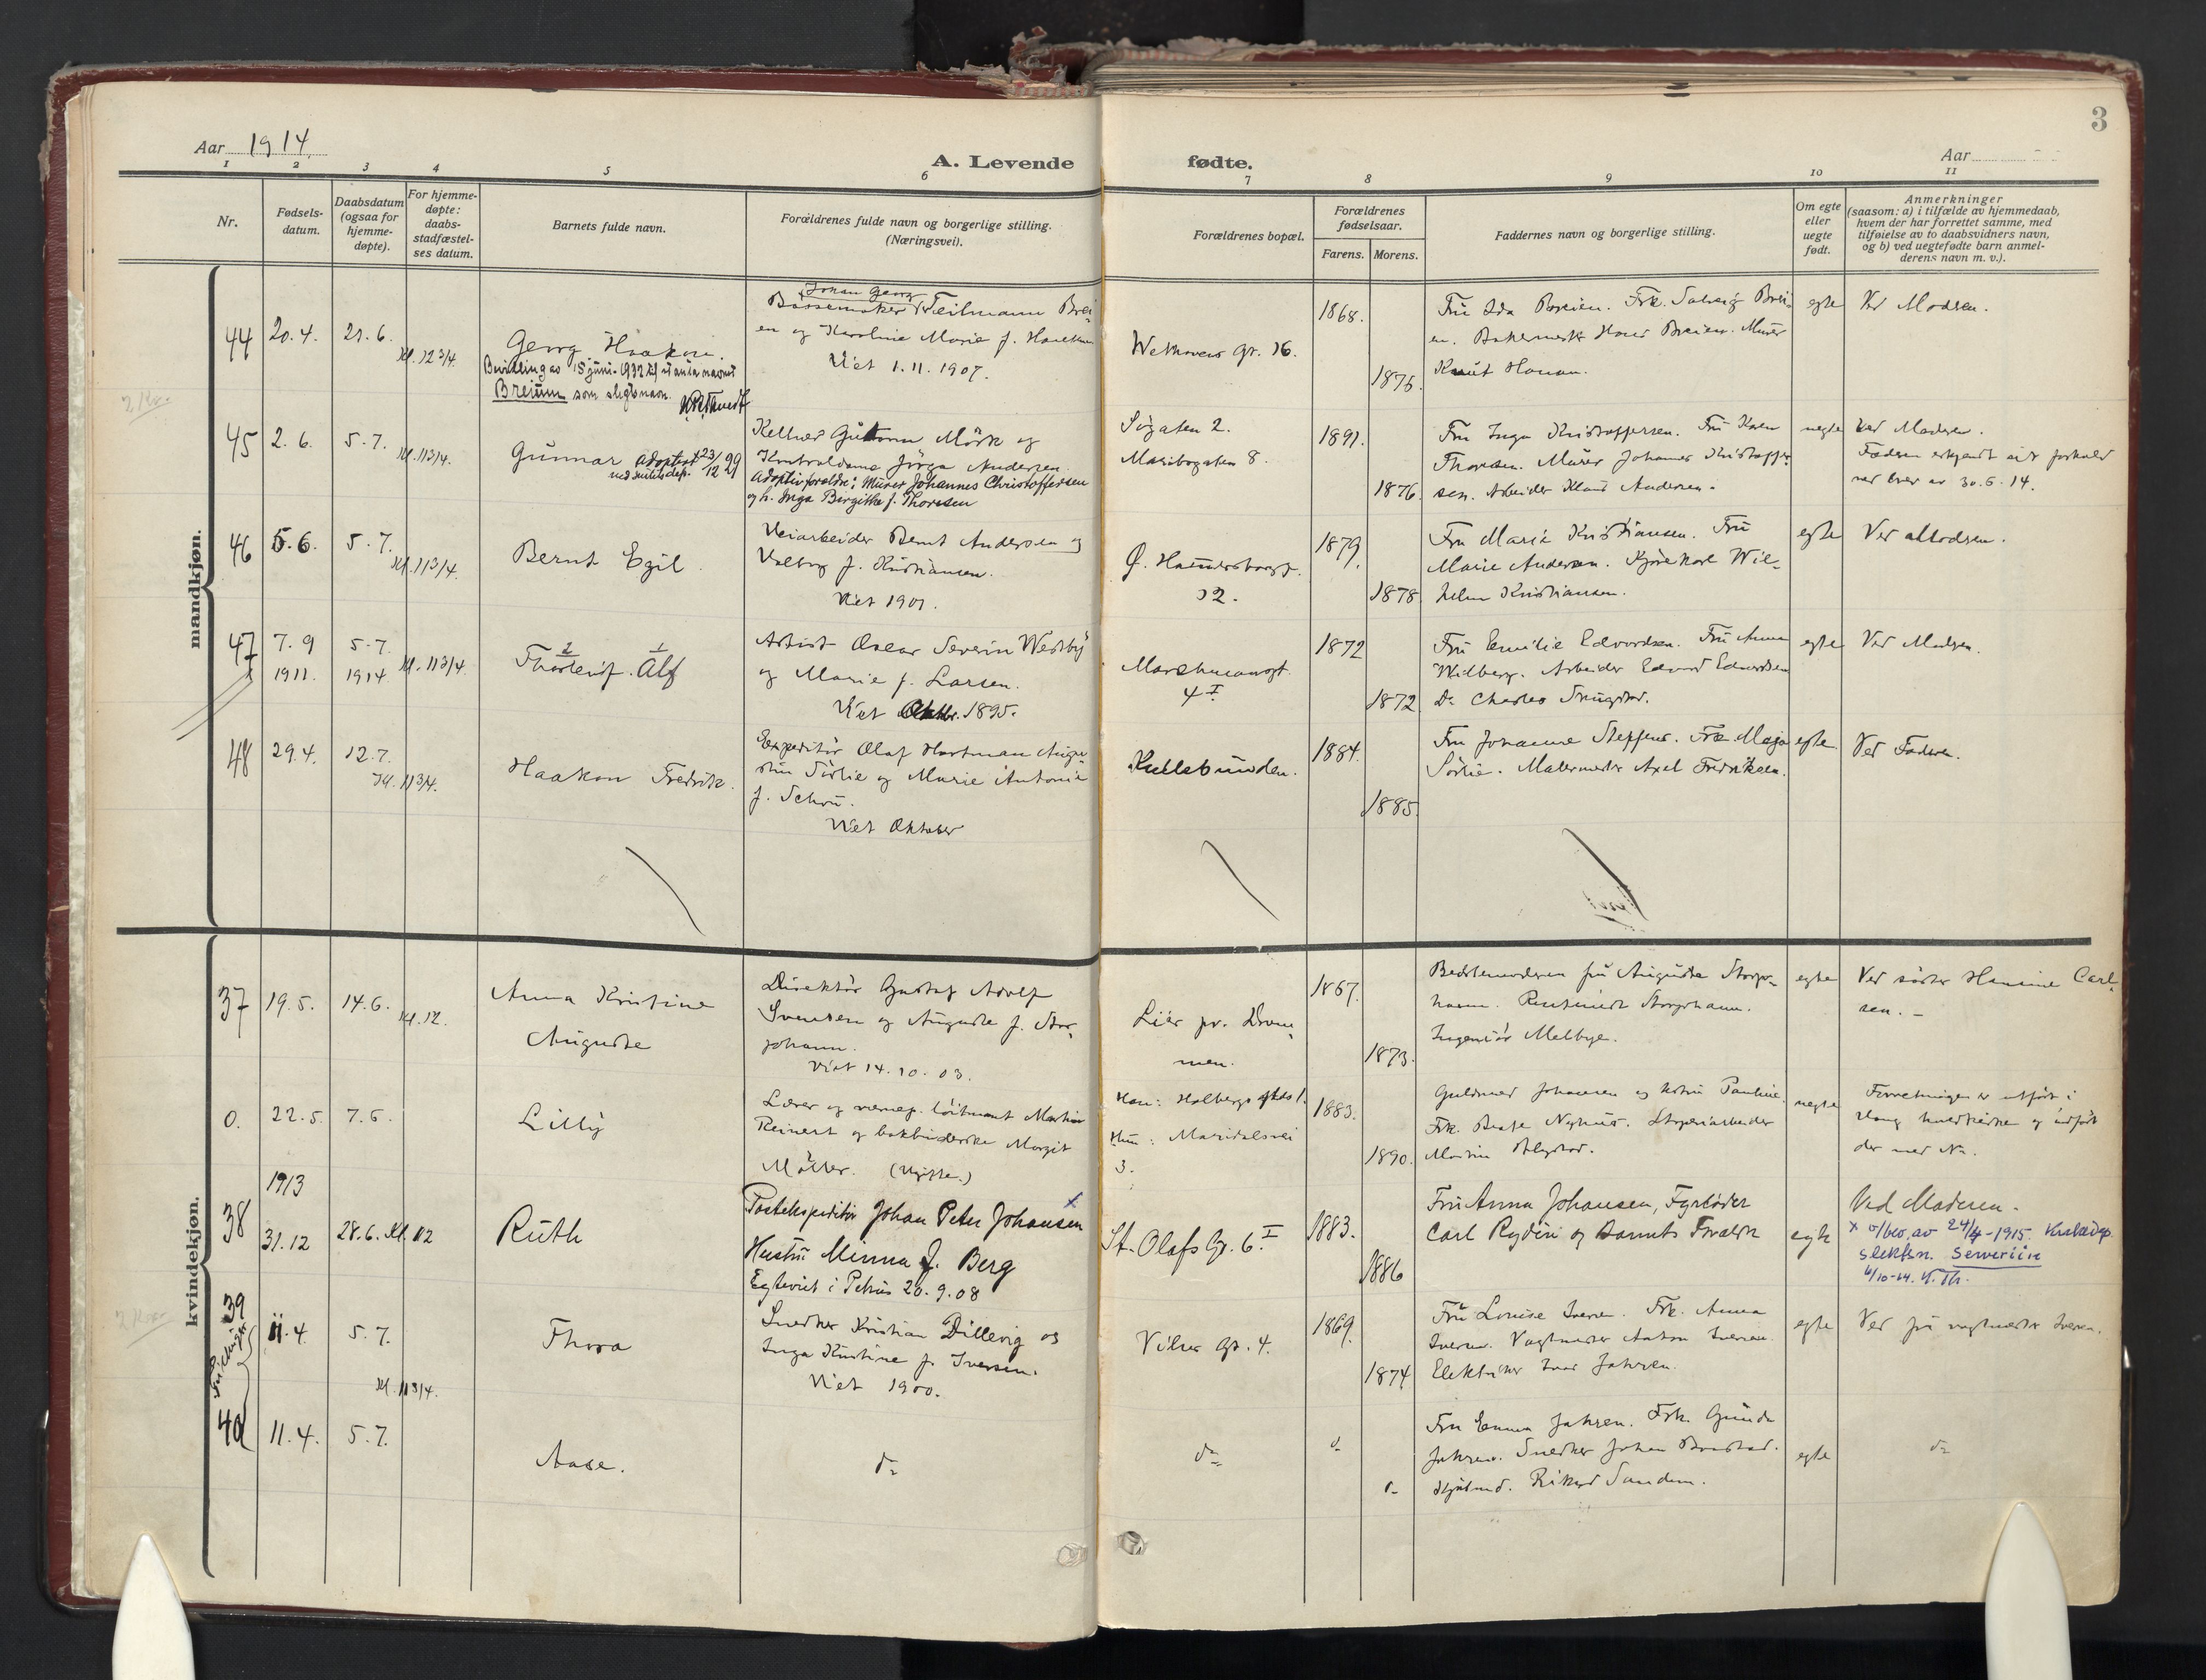 3
Aar 1914.
A. Levende fødte.
Aar
1 2 3 4 5 6 7 8 9 10 11
Nr.
Fødsels-
datum.
Daabsdatum
(ogsaa for
hjemme-
døpte).
For hjemme-
døpte:
daabs-
stadfæstel-
ses datum.
Barnets fulde navn.
Forældrenes fulde navn og borgerlige stilling.
(Næringsvei).
Forældrenes bopæl.
Forældrenes
fødselsaar.
Farens. Morens.
Faddernes navn og borgerlige stilling.
Om egte
eller
uegte
født.
Anmerkninger
(saasom: a) i tilfælde av hjemmedaab,
hvem der har forrettet samme, med
tilføielse av to daabsvidners navn,
og b) ved uegtefødte barn anmel-
derens navn m. v.).
mandkjøn.
2 Kr.
44
20.4.
21.6.
Kl. 12 3/4
Georg Haakon.
Bevilling av 15 juni 1932 til at anta navnet
Breium som slegtsnavn.
Johan Georg
Bøssemaker Teilmann Brei-
en og Karoline Marie f.
Viet 1.11.1907.
Welhavens Gt. 16.
1868.
1875.
Fru Ida Breien. Frk. Solveig Brei-
en. Bakermester Hans Breien. Murer
Knut
egte
Ved Moderen.
45
2.6.
5.7.
Kl. 11 3/4.
Gunnar adoptert 23/12 29
ved justitsdep.
Kellner Guttorm Mörk og
Kontroldame Jörga Andersen.
Adoptivforeldre: Murer Johannes Christoffersen
og h. Inga Birgithe f. Thoresen
Sögaten 2.
Maribogaten 8.
1891.
1876.
Fru Inga Kristoffersen. Fru Karen
Thoresen. Murer Johannes Kristoffer-
sen. Arbeider Klaus Andersen.
uegte
Ved Moderen.
Faderen erkjendt sit forhold
ved brev av 30.6.14.
46
5.6.
5.7.
Kl. 11 3/4.
Bernt Egil.
Veiarbeider Bernt Andersen og
Valborg f. Kristiansen.
Viet 1901.
Ø. Hammersborgg.
12.
1879.
1878.
Fru Marie Kristiansen. Fru
Marie Andersen. Kjörekarl Wil-
helm Kristiansen.
egte
Ved Moderen.
47
7.9
1911.
5.7.
1914
Kl. 11 3/4.
2 1
Thorleif. Alf
Artist Oscar Severin Westby
og Marie f. Larsen.
Viet Oktbr. 1895.
4 I
1872
1872
Fru Emilie Edvardsen. Fru Anna
Wilberg. Arbeider Edvard Edvardsen
Do Charles
egte
Ved Moderen.
48
29.4.
12.7.
Kl. 11 3/4.
Haakon Fredrik.
Expeditör Olaf Hartman Augu-
stin Sörlie og Marie Antonie
f. Schou.
Viet Oktober
Kullebunden.
1884.
1885.
Fru Johanne Steffens. Frk. Maja
Sörlie. Malermester Axel Fredriksen.
egte
Ved Faderen.
kvindekjøn.
37
19.5.
14.6.
Kl. 12.
Anna Kristine
Auguste
Direktör Gustaf Adolf
Svensen og Auguste f. Stor-
johann.
Viet 14.10.03.
Lier pr. Dram-
men.
1867.
1873.
Bedstemoderen fru Auguste Storjo-
hann. Storjohann.
Ingeniör Melbye.
egte
Ved söster Hansine Carl-
sen. -
0.
22.5.
7.6.
Lilly
Lærer og vernep. löitnant Martin
Reinert og bokbinderske Margit
Möller. (Ugifte.)
Han: Holbergs 1.
Hun: Maridalsvei
3.
1883.
1890.
Guldsmed Johansen og hustru Pauline.
Frk. Beate Nyhus. Stoperiarbeider
Martin
uegte
Forretningen er utfört i
og indfört
der med No.
38
1913
31.12
28.6.
Kl. 12
Ruth
Postekspeditör Johan Peter Johansen x
Hustru Minna f. Berg
Egteviet i Petrus 20.9.08
St. Olafs Gt. 6. I
1883.
1886
Fru Anna Johansen, Fyrböder
Carl Rydin og Barnets Forældre
egte
Ved Moderen.
x v/bev. av 24/4-1915.
slektsn. Serveriin
6/10-64. K. Th.
2 Kr.
39
11.4.
5.7.
Kl. 11 3/4.
Thora
Snedker Kristian Dillevig og
Inga Kristine f. Iversen.
Viet 1900.
Vibes Gt. 4.
1869.
1874
Fru Louise Iversen. Frk. Anna
Iversen. Vagtmester Anton Iversen.
Elektriker Ivar Jahren.
egte
Ved fru vagtmester Iversen.
40
11.4.
5.7.
Aase.
do
do
do
do
Fru Emma Jahren. Frk. Gunda
Jahren. Snedker Johan
Rikard Sandem.
egte
do